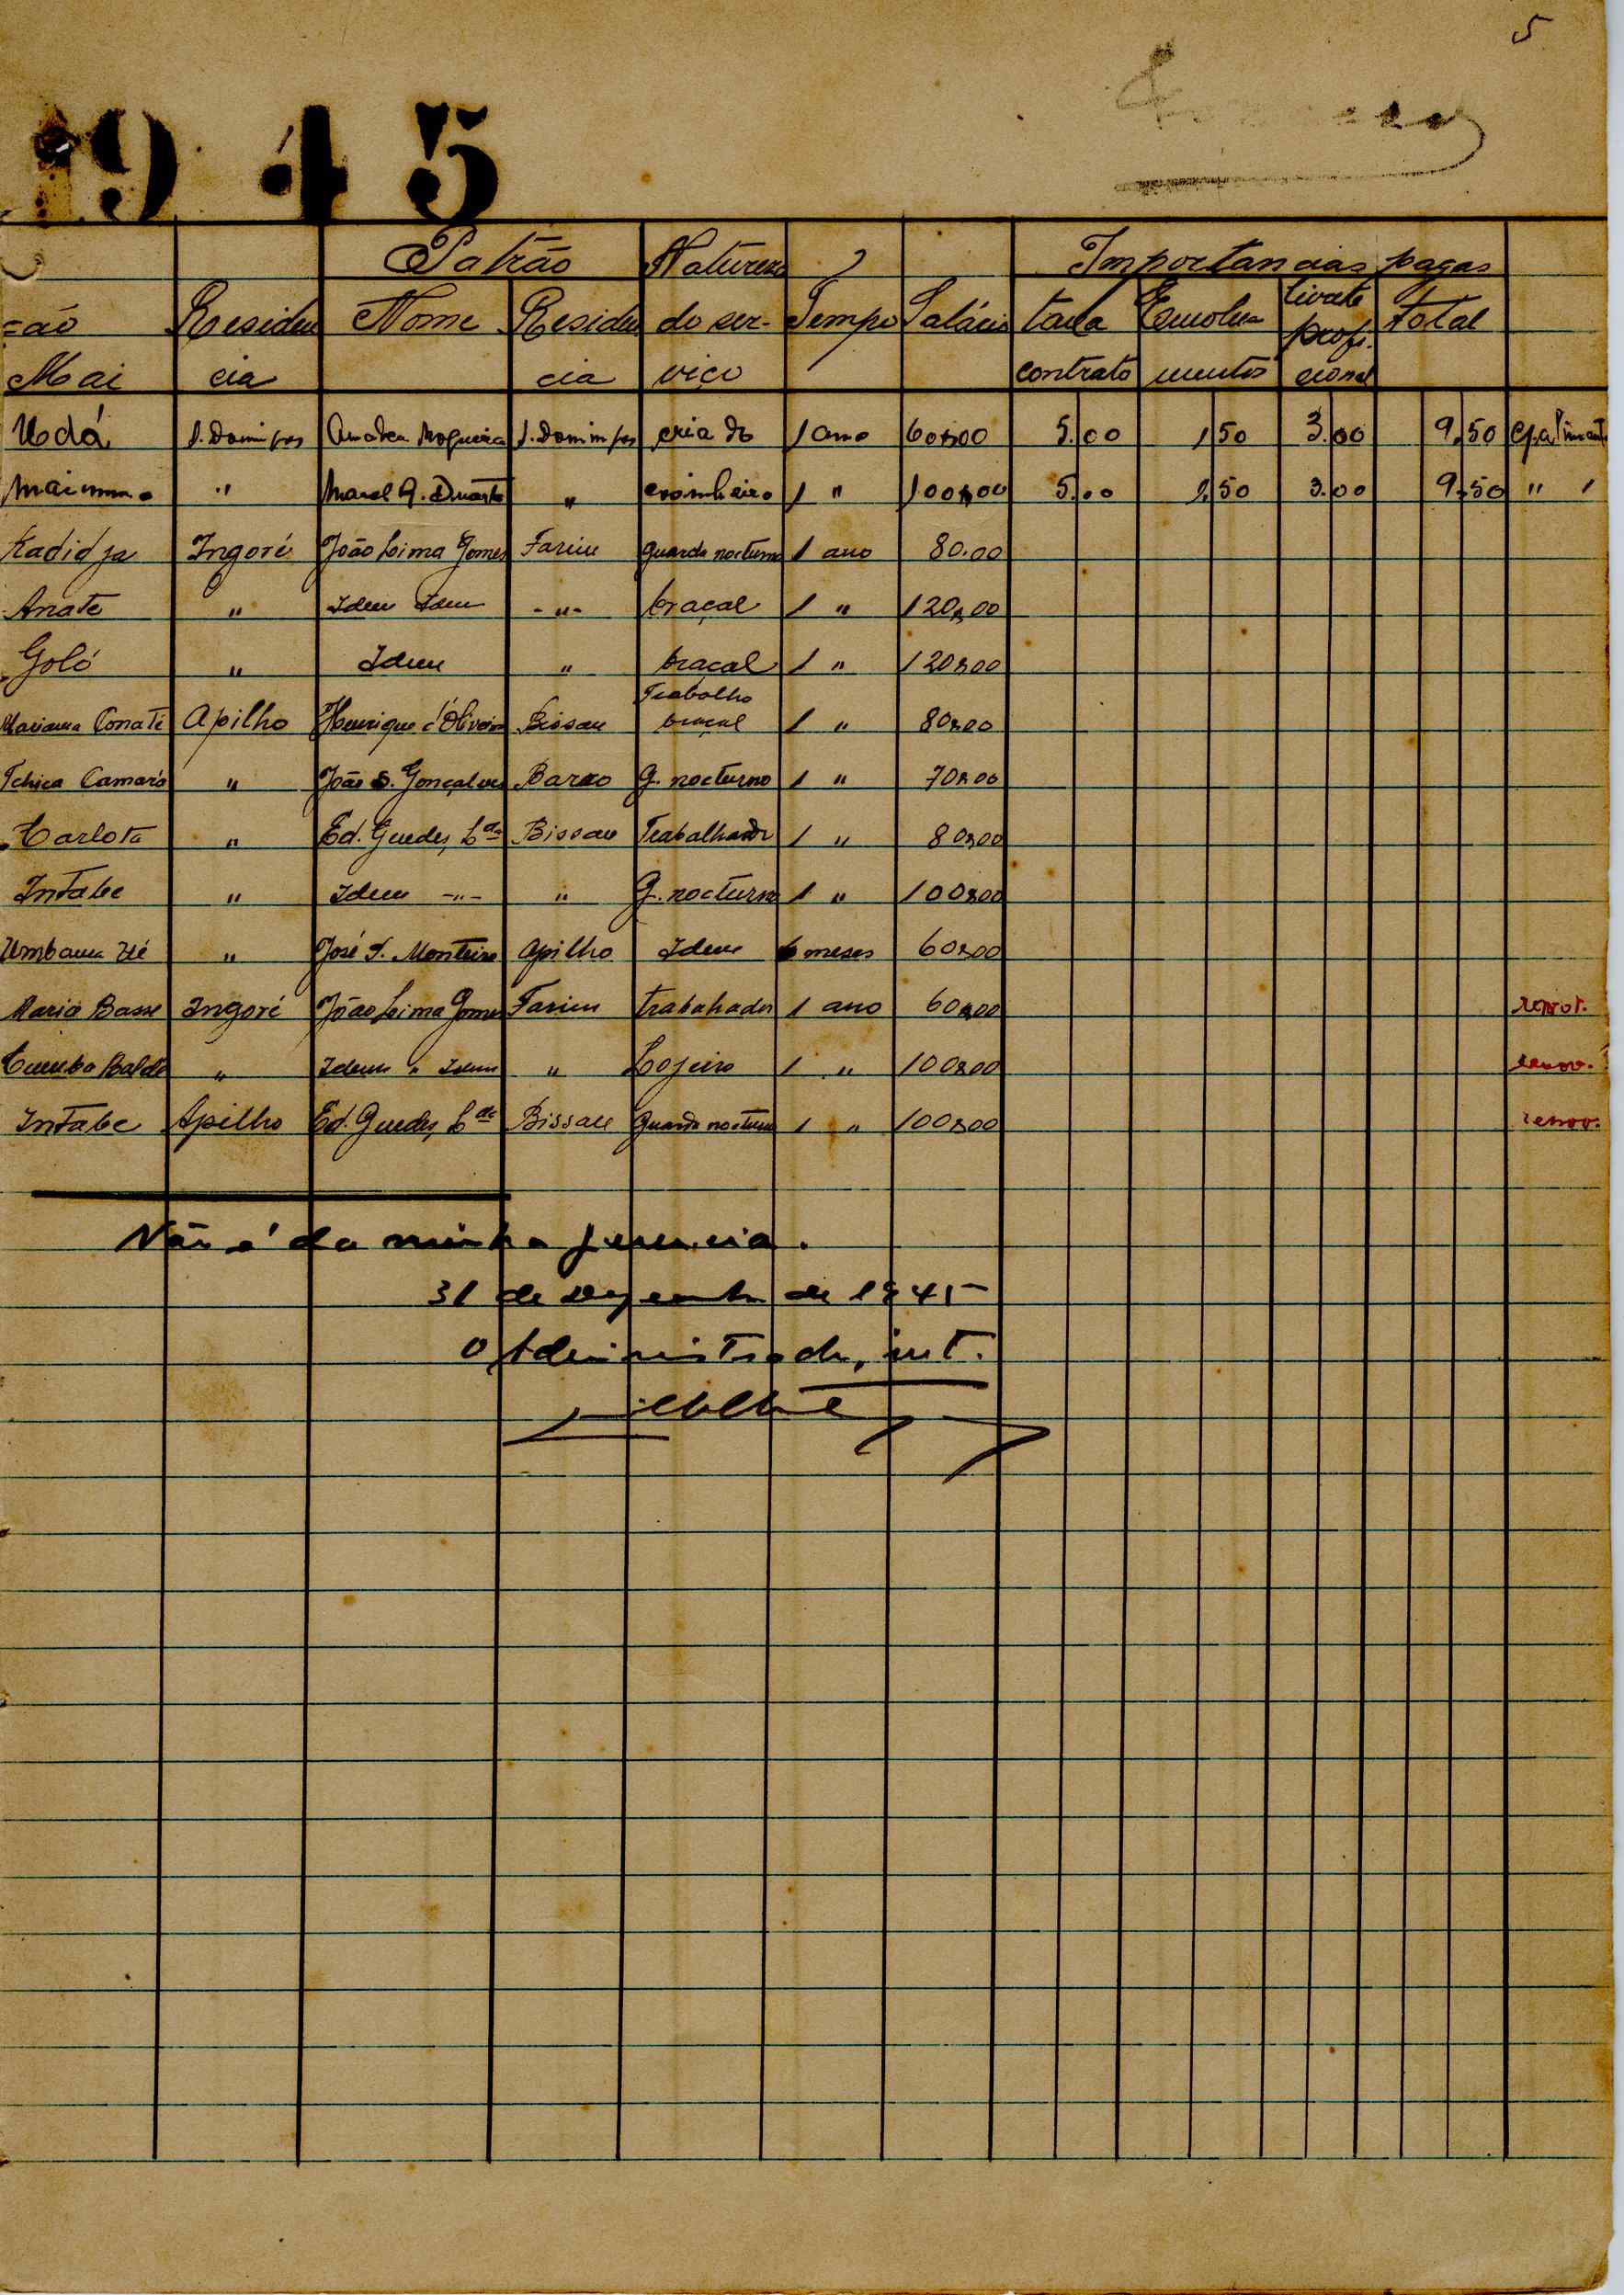 5
1945
Patrão Natureza Importancias pagas
=ão Residen Nome Residen do ser- Tempo Salário taxa Emolu livrete total
profi.
Mai cia cia viço contrato mentos cional
Udá S. Domingos Amadeu Nogueira S. Domingos criado 1 ano 60$00 5.00 1,50 3.00 9,50
" Manoel A. Duarte " cosinheiro 1 " 100$00 5.00 1,50 3.00 9,50 " "
Kadidja Ingoré João Lima Gomes Farim guarda nocturno 1 ano 80.00
Anate " Idem Idem -"- braçal 1 " 120$00
Goló " Idem " braçal 1 " 120$00
Trabalho
Mariama Conaté Apilho Henrique d'Oliveira Bissau braçal 1 " 80$00
Tchica Camará " João S. Gonçalves Barro G. nocturno 1 " 70$00
Carlota " Ed. Guedes, Lda Bissau Trabalhador 1 " 80$00
Intabe " Idem -"- " G. nocturno 1 " 100$00
" José S. Monteiro Apilho Idem 6 meses 60$00
Maria Basse Ingoré João Lima Gomes Farim trabahador 1 ano 60$00 renov.
Cumba Baldé " Idem " Idem " Lojeiro 1 " 100$00 renov.
Intabe Apilho Ed. Guedes, Lda Bissau Guarda nocturno 1 " 100$00 renov.
Não é da minha gerencia.
31 de Dezembro de 1945
O Administrador, int.